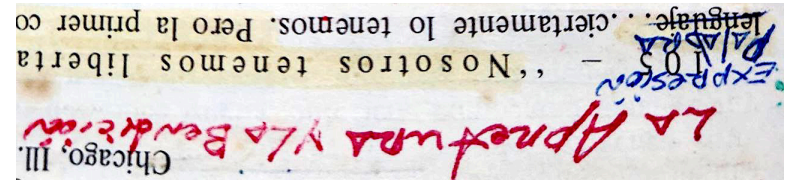 Chicago, Ill.
LA ApretURA Y LA Bendición
EXPRESIÓN
103 – “Nosotros tenemos liberta
PALABRA
lenguaje...ciertamente lo tenemos. Pero la primer co